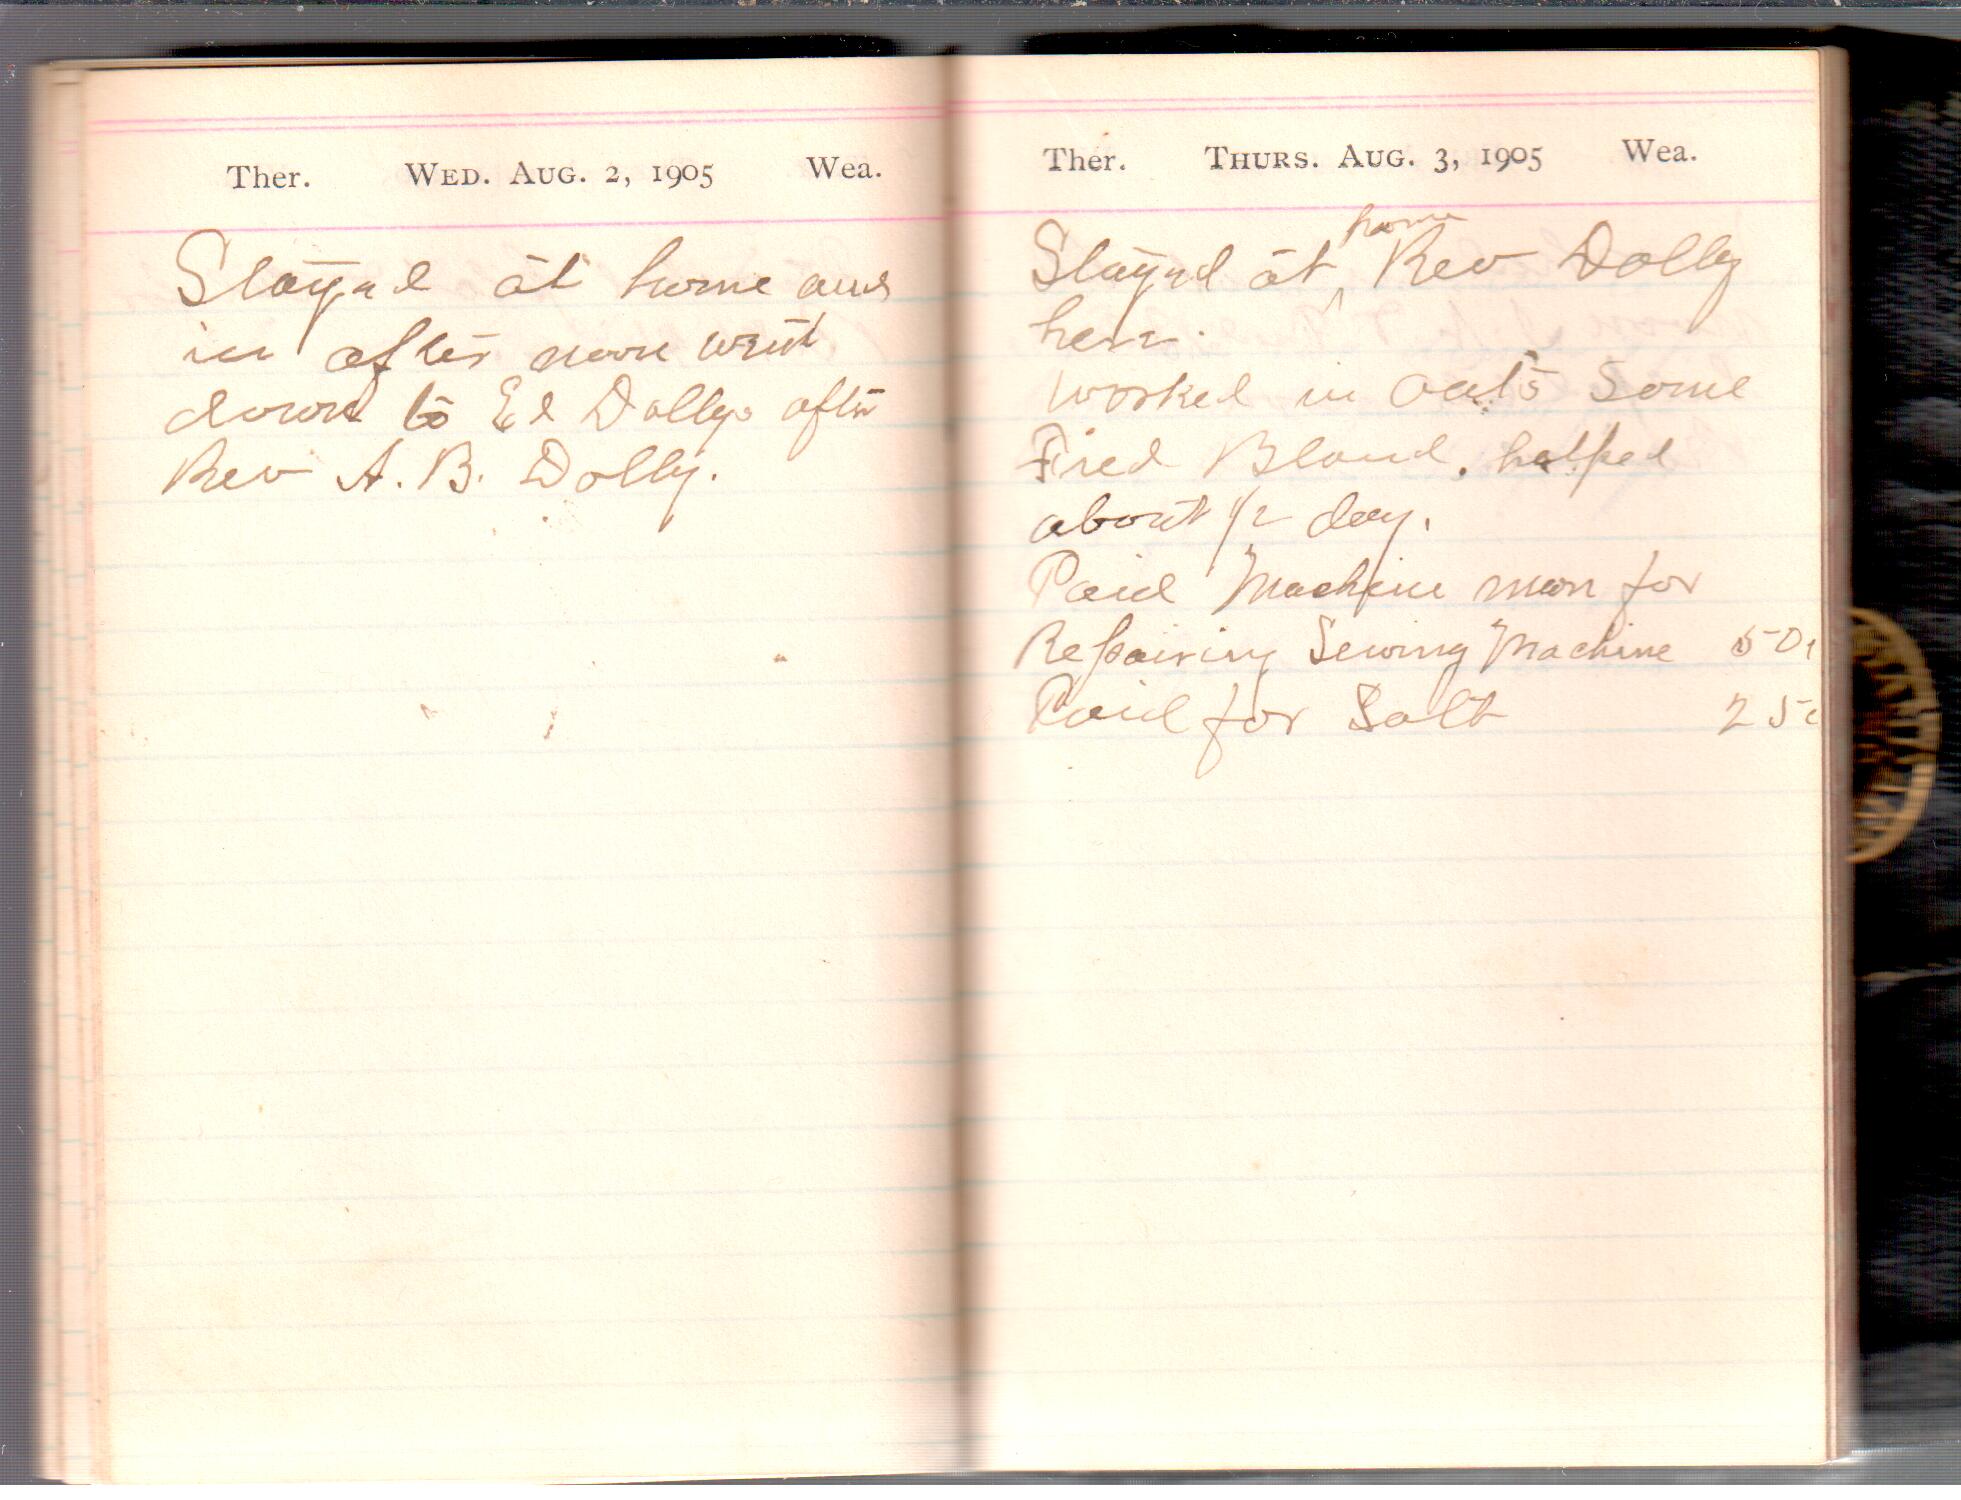 Ther. WED. AUG. 2, 1905 Wea.
Stayed at home and
in after noon went
down to Ed Dollys after
Rev A. B. Dolly.
Ther. THURS. AUG. 3, 1905 Wea.
Stayed at home Rev Dolly
here.
worked in oats some
Fred Bland. helped
about 1/2 day.
Paid Machine man for
Repairing Sewing Machine 50c
Paid for Salt 25c